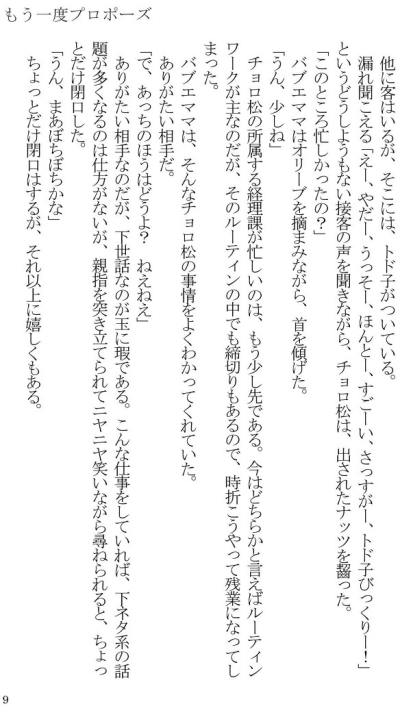 もう一度プロポーズ
他に客はいるが、そこには、トド子がついている。
漏れ聞こえる「えー、やだー、うっそー、ほんとー、すごーい、さっすがー、トド子びっくりー！」
というどうしようもない接客の声を聞きながら、チョロ松は、出されたナッツを齧った。
「このところ忙しかったの？」
バブエママはオリーブを摘まみながら、首を傾げた。
「うん、少しね」
チョロ松の所属する経理課が忙しいのは、もう少し先である。今はどちらかと言えばルーティン
ワークが主なのだが、そのルーティンの中でも締切りもあるので、時折こうやって残業になってし
まった。
バブエママは、そんなチョロ松の事情をよくわかってくれていた。
ありがたい相手だ。
「で、あっちのほうはどうよ？　ねえねえ」
ありがたい相手なのだが、下世話なのが玉に瑕である。こんな仕事をしていれば、下ネタ系の話
題が多くなるのは仕方がないが、親指を突き立てられてニヤニヤ笑いながら尋ねられると、ちょっ
とだけ閉口した。
「うん、まあぼちぼちかな」
ちょっとだけ閉口はするが、それ以上に嬉しくもある。
9